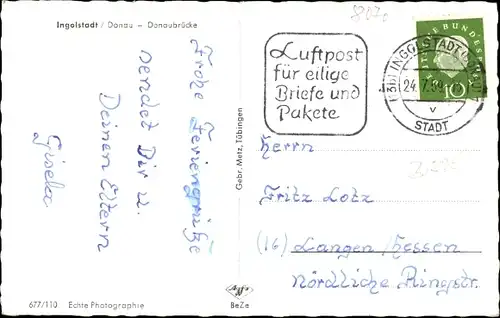 Ingolstadt / Donau – Donaubrücke
Frohe Feriengrüße
sendet Dir u.
Deinen Eltern
Gisela
677/110 Echte Photographie
Gebr. Metz, Tübingen
Agfa
BeZe
Luftpost
für eilige
Briefe und
Pakete
INGOLSTADT
24.7.59
V
STADT
DEUTSCHE BUNDESPOST
10
Herrn
Fritz Lotz
(16) Langen/Hessen
Nördliche Ringstr.